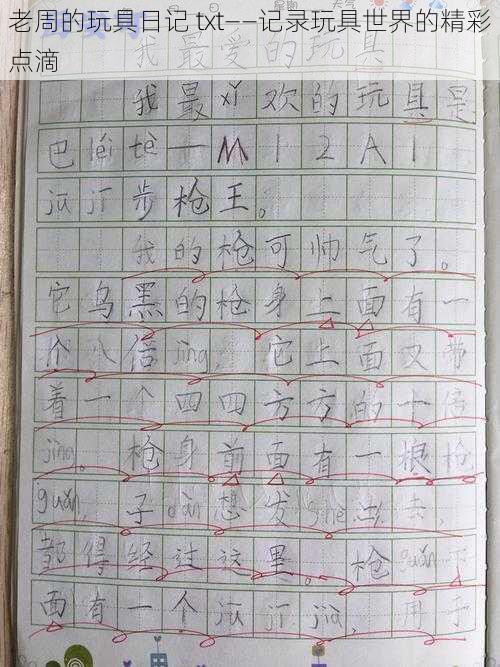 老周的玩具日记 txt——记录玩具世界的精彩
点滴
我最爱的玩具
我最xǐ欢的玩具是
巴léi tè一M12A1
jū jī步枪王。
我的枪可帅气了。
它乌黑的枪身上面有一
个八倍jìng,它上面又带
着一个四四方方的十倍
jìng。枪身前面有一根枪
guǎn,子dàn想发 去,
都得经过这里。枪guǎn下
面有一个jū jī jià,用于